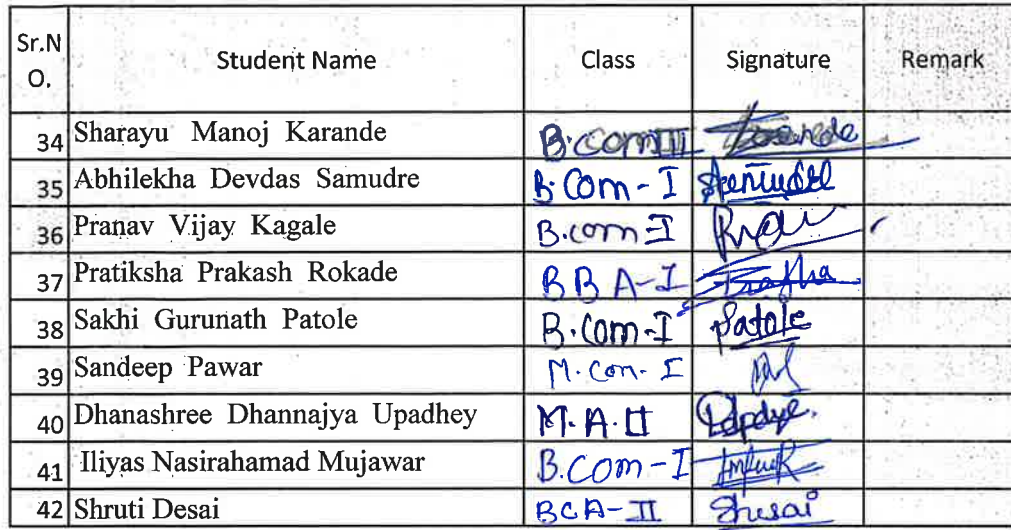 Sr.N O. Student Name Class Signature Remark
34 Sharayu Manoj Karande B.com III
35 Abhilekha Devdas Samudre B.Com - I
36 Pranav Vijay Kagale B.com I
37 Pratiksha Prakash Rokade BBA-I
38 Sakhi Gurunath Patole B.Com-I Patole
39 Sandeep Pawar M.Com-I
40 Dhanashree Dhannajya Upadhey M.A.II
41 Iliyas Nasirahamad Mujawar B.Com-I
42 Shruti Desai BCA-II